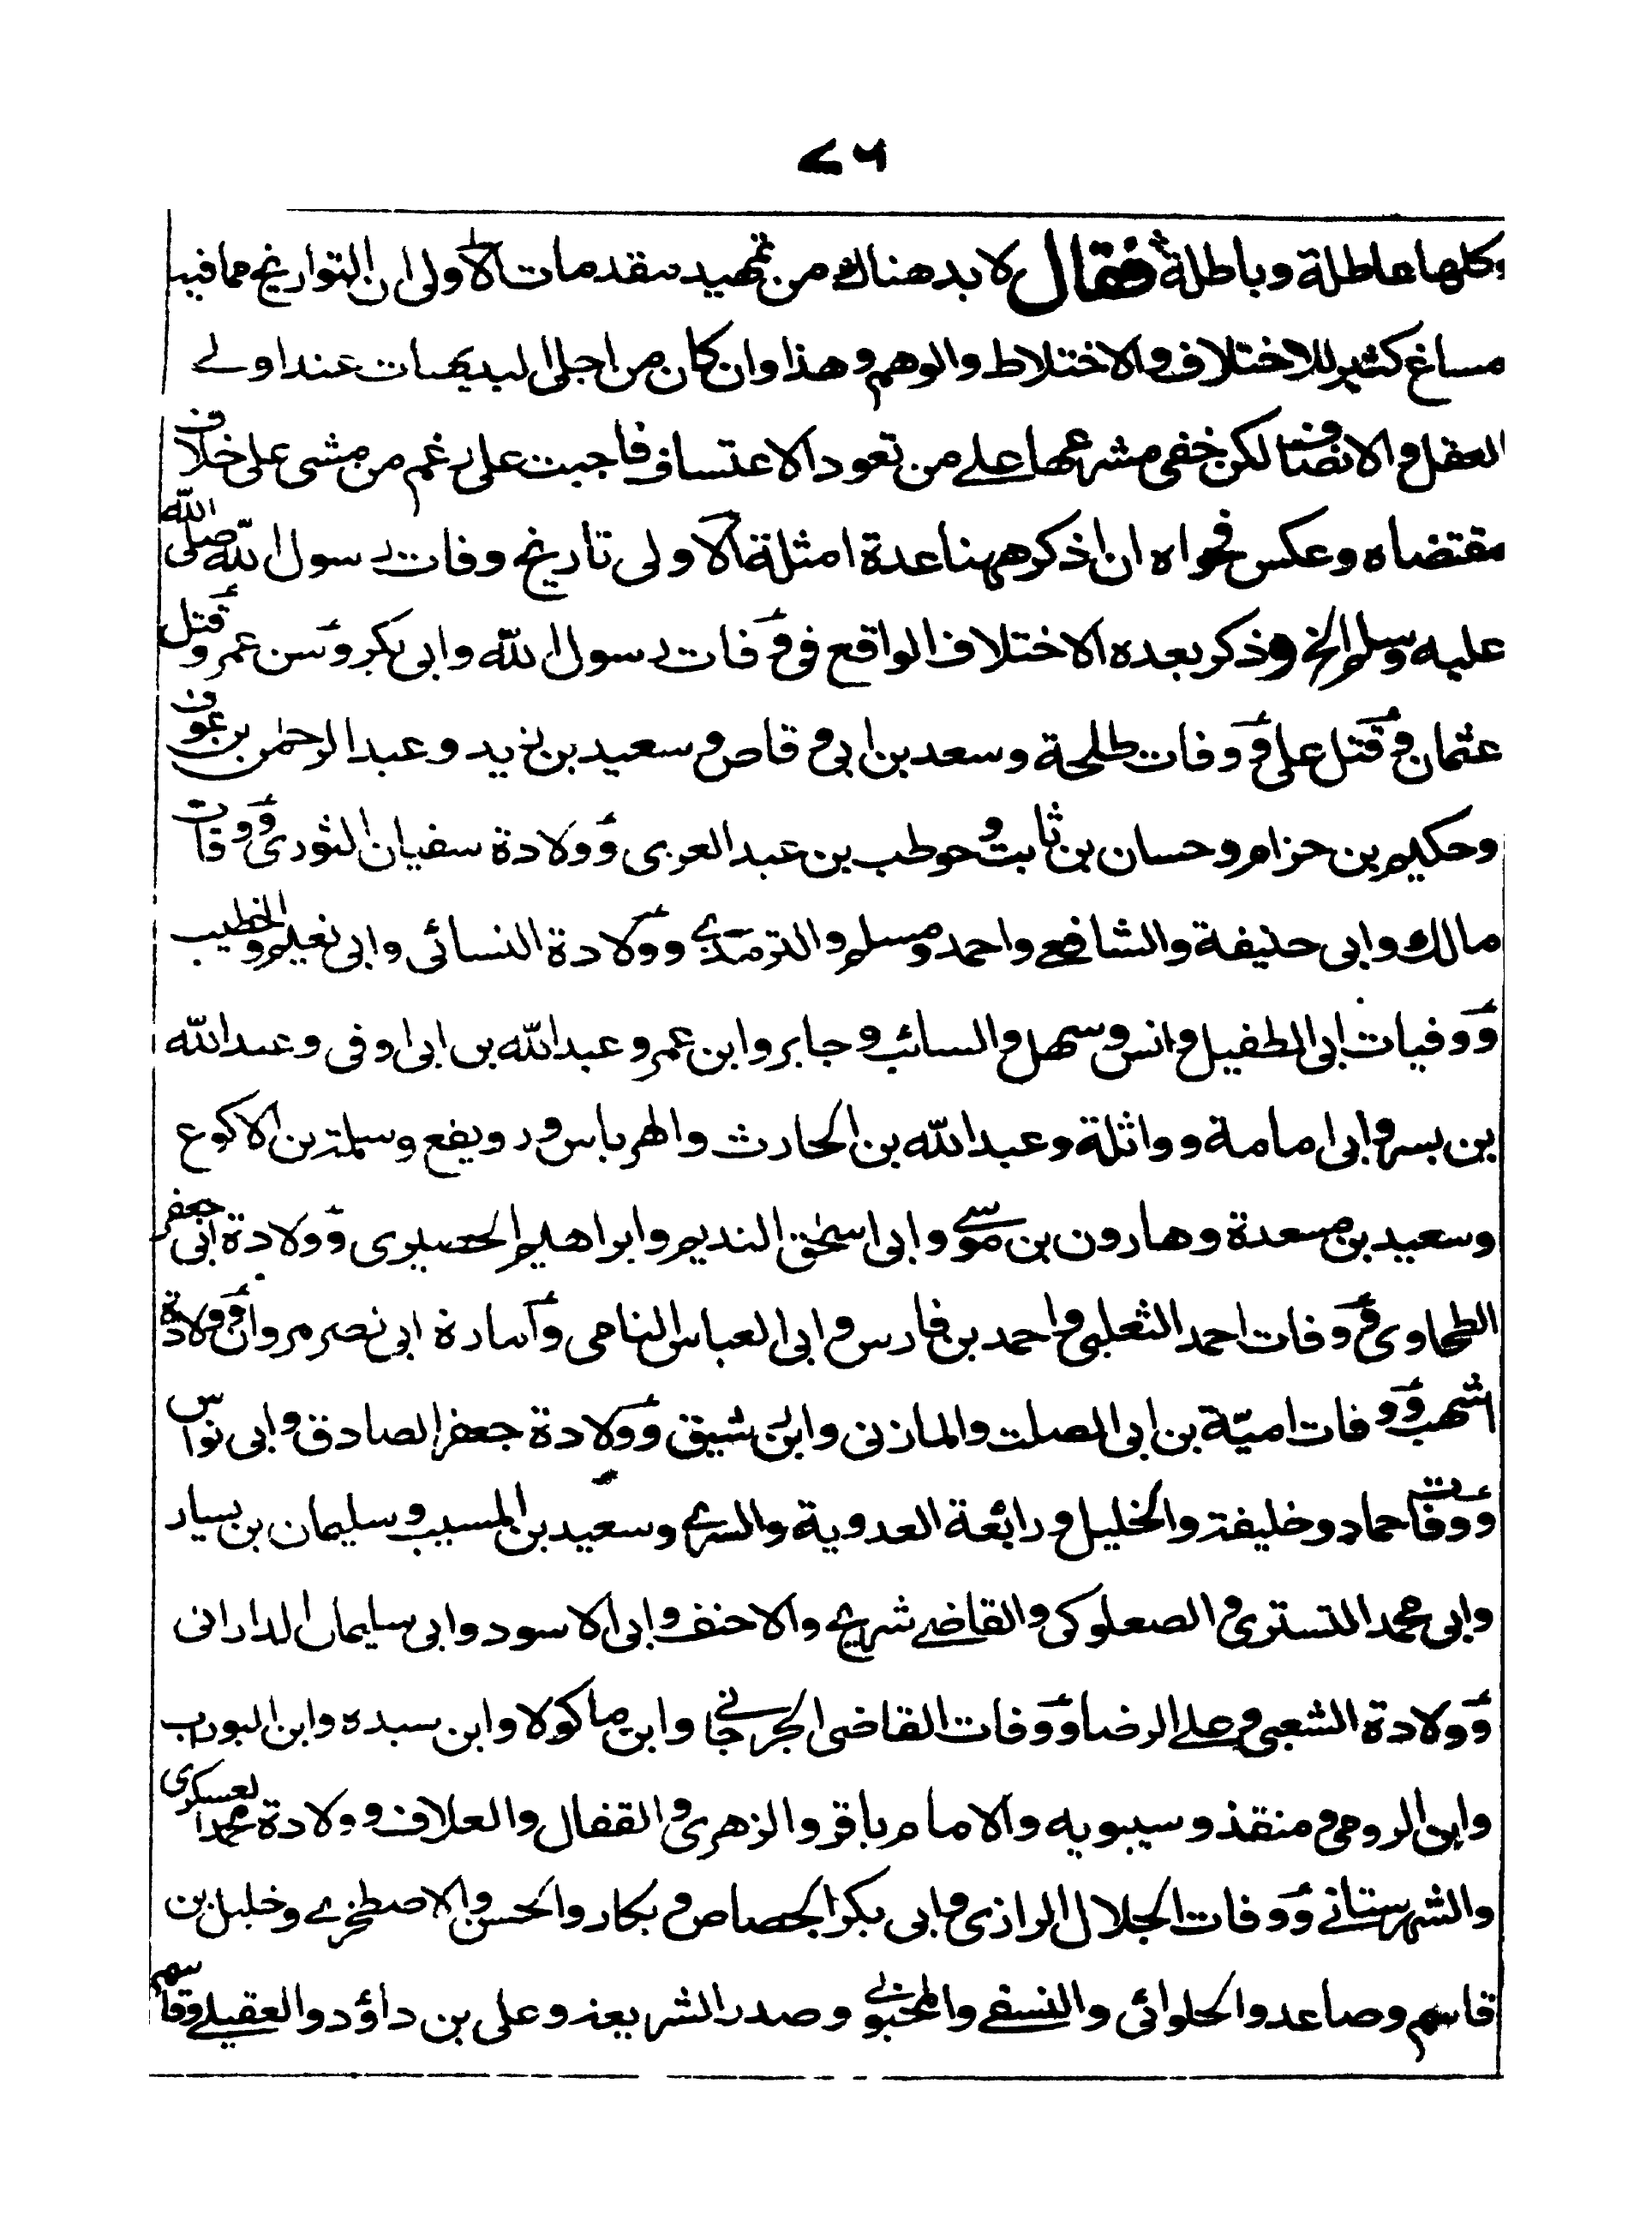 ٧٦
وكلها عاطلة وباطلة فقال لا بد هناك من تمهيد مقدمات الاولى ان التواريخ مما فيه
مساغ كثير للاختلاف والاختلاط والوهم وهذا وان كان من اجلى البديهيات عند اولے
العقل والانصاف لكن خفى مشرعها علے من تعود الاعتساف فاجبت على رغم من مشى على خلاف
مقتضاه وعكس فحواه ان اذكر ههنا عدة امثلة الاولى تاريخ وفات رسول الله صلى الله
عليه وسلم الخ وذكر بعده الاختلاف الواقع فى وفات رسول الله وابى بكر وسن عمر وقتل
عثمان وقتل على ووفات طلحة وسعد بن ابى وقاص وسعيد بن زيد وعبد الرحمٰن بن عوف
وحكيم بن حزام وحسان بن ثابت وحوطب بن عبد العزى وولادة سفيان الثورى ووفات
مالك وابى حنيفة والشافعے واحمد ومسلم والترمذے وولادة النسائى وابى نعيم والخطيب
ووفيات ابى الطفيل وانس وسهل والسائب وجابر وابن عمر وعبد الله بن ابى اوفى وعبد الله
بن بسر وابى امامة وواثلة وعبد الله بن الحارث والهرباس ورويفع وسلمة بن الاكوع
وسعيد بن مسعدة وهارون بن موسے وابى اسحٰق النديم وابراهيم الحصيرى وولادة ابى جعفر
الطحاوى ووفات احمد الثعلبى واحمد بن فارس وابى العباس النامى وامارة ابى نصر مروان وولادة
اشهب ووفات اميّة بن ابى الصلت والمازنى وابن شيق وولادة جعفر الصادق وابى نواس
ووفات حماد وخليفة والخليل ورابعة العدوية والسرے وسعيد بن المسيب وسليمان بن يسار
وابى محمد التسترى والصعلوكى والقاضے شريح والاحنف وابى الاسود وابى سليمان الدارانى
وولادة الشعبى وعلے الرضا ووفات القاضى الجرجانے وابن ماكولا وابن سيده وابن البواب
وابن الرومى ومنقذ وسيبويه والامام باقر والزهرى والقفال والعلاف وولادة محمد العسكرى
والشهرستانے ووفات الجلال الرازى وابى بكر الجصاص وبكار والحسن والاصطخرے وخليل بن
قاسم وصاعد والحلوائى والنسفے والمحبوبے وصدر الشريعة وعلى بن داؤد والعقيلے وقاسم